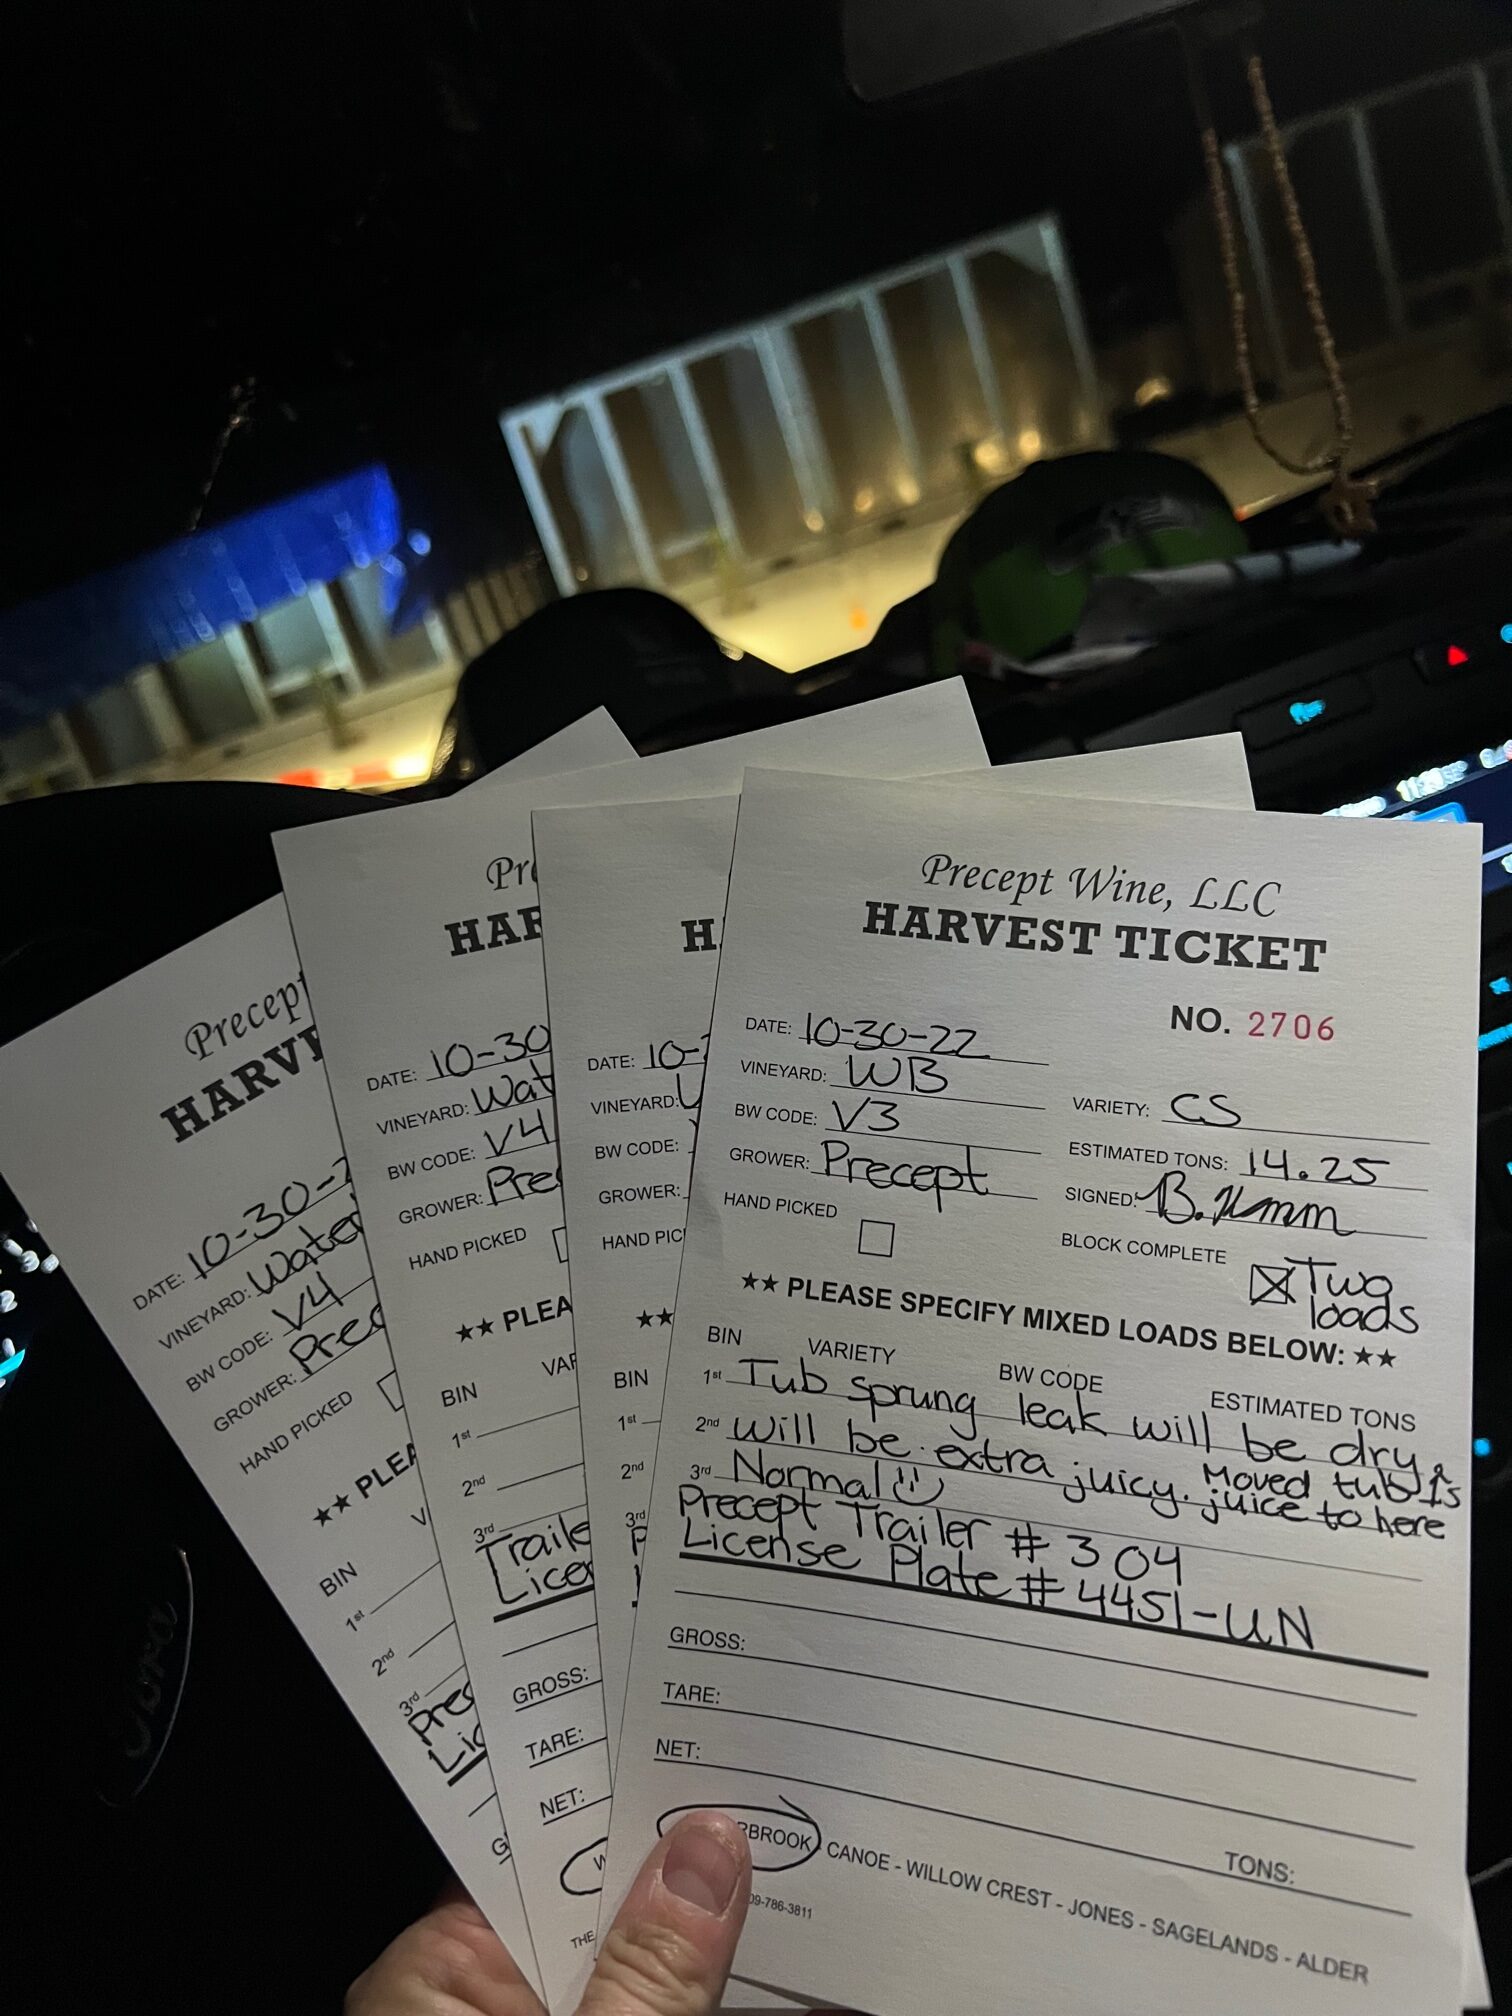 Precept Wine, LLC
HARVEST TICKET
NO. 2706
DATE: 10-30-22
VINEYARD: WB
VARIETY: CS
BW CODE: V3
ESTIMATED TONS: 14.25
GROWER: Precept
SIGNED: B.
HAND PICKED
BLOCK COMPLETE
Two
loads
★★ PLEASE SPECIFY MIXED LOADS BELOW: ★★
BIN VARIETY BW CODE ESTIMATED TONS
1st Tub sprung leak will be dry
2nd will be extra juicy. Moved tub 1s
3rd Normal juice to here
Precept Trailer # 304
License Plate # 4451-UN
GROSS:
TARE:
NET:
TONS:
RBROOK - CANOE - WILLOW CREST - JONES - SAGELANDS - ALDER
09-786-3811
H
DATE: 10-
VINEYARD:
BW CODE:
GROWER:
HAND PIC
★★
BIN
1st
2nd
3rd
Pr
HAR
DATE: 10-30
VINEYARD: Wat
BW CODE: V4
GROWER: Prec
HAND PICKED
★★ PLEA
BIN VAR
1st
2nd
3rd
Traile
Licen
GROSS:
TARE:
NET:
W
THE
Precept
HARV
DATE: 10-30-2
VINEYARD: Water
BW CODE: V4
GROWER: Prec
HAND PICKED
★★ PLEA
BIN V
1st
2nd
3rd
Prec
Lic
G
Ford